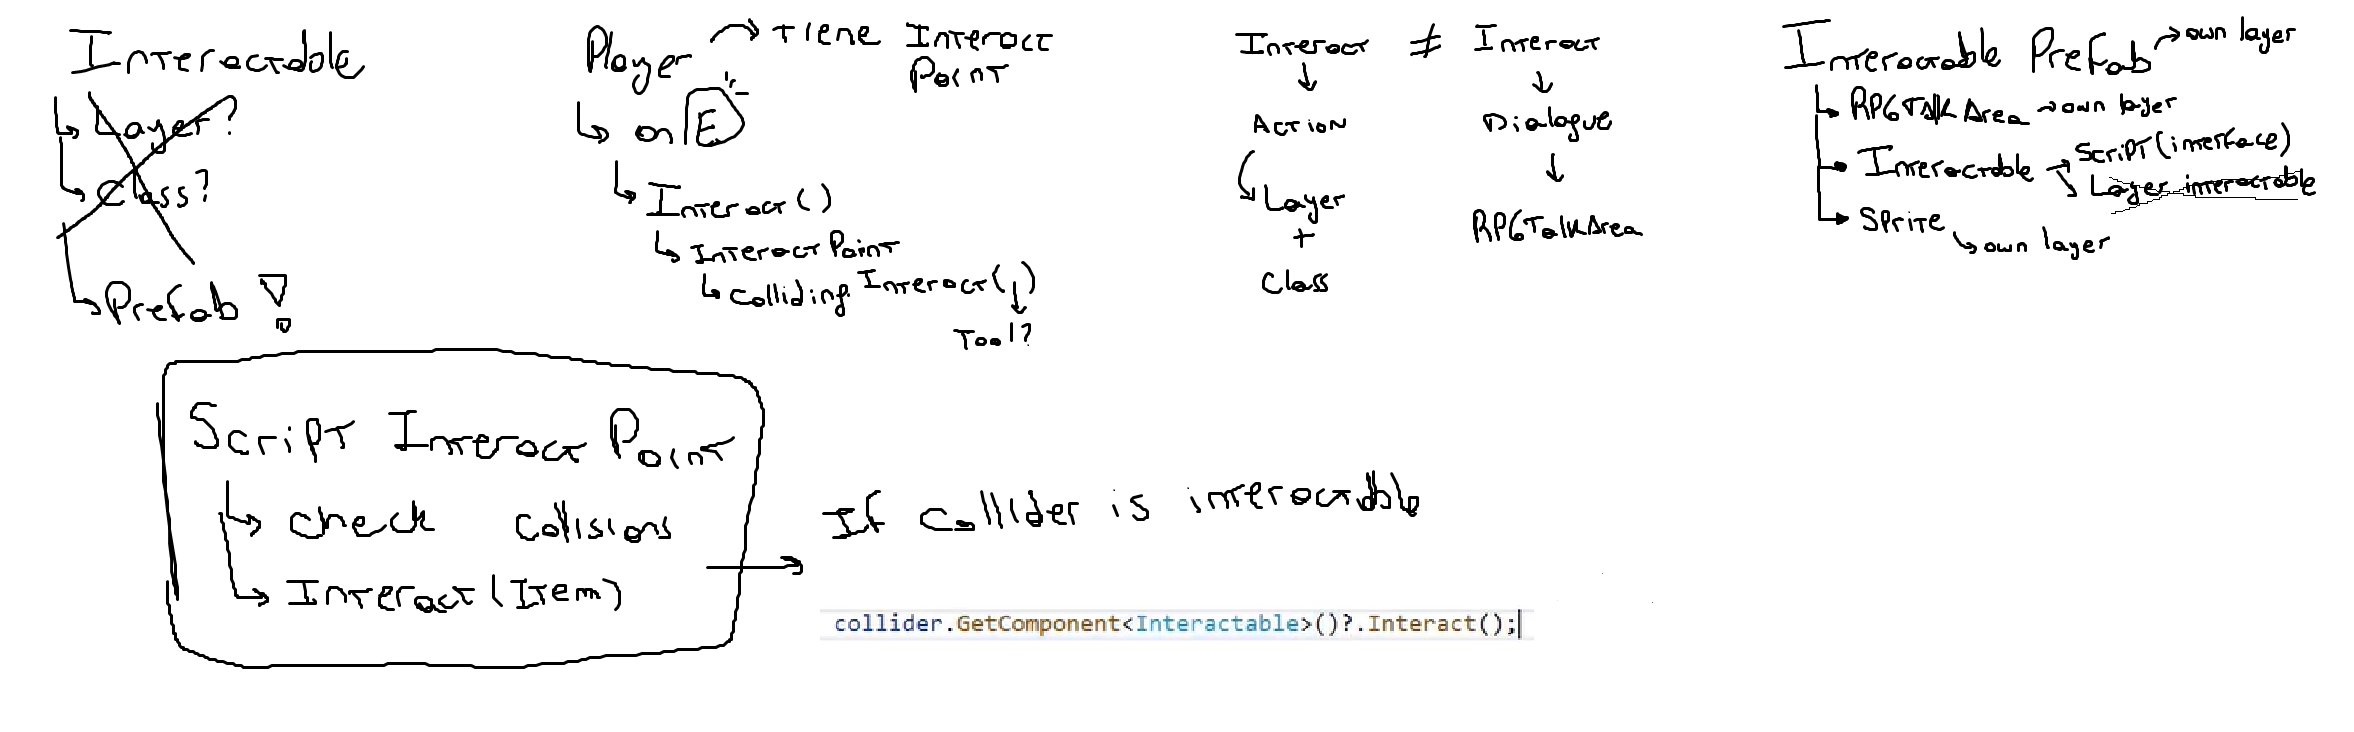 Interactable
Layer?
Class?
Prefab !
Player → tiene Interact Point
on E
Interact()
Interact Point
Colliding. Interact()
Tool?
Interact ≠ Interact
Action
Layer
+
Class
Dialogue
RPGTalkArea
Interactable Prefab → own layer
RPGTalkArea → own layer
Interactable → Script (interface)
Layer interactable
Sprite
own layer
Script Interact Point
check collisions
Interact (Item)
If Collider is interactable
collider.GetComponent<Interactable>()?.Interact();